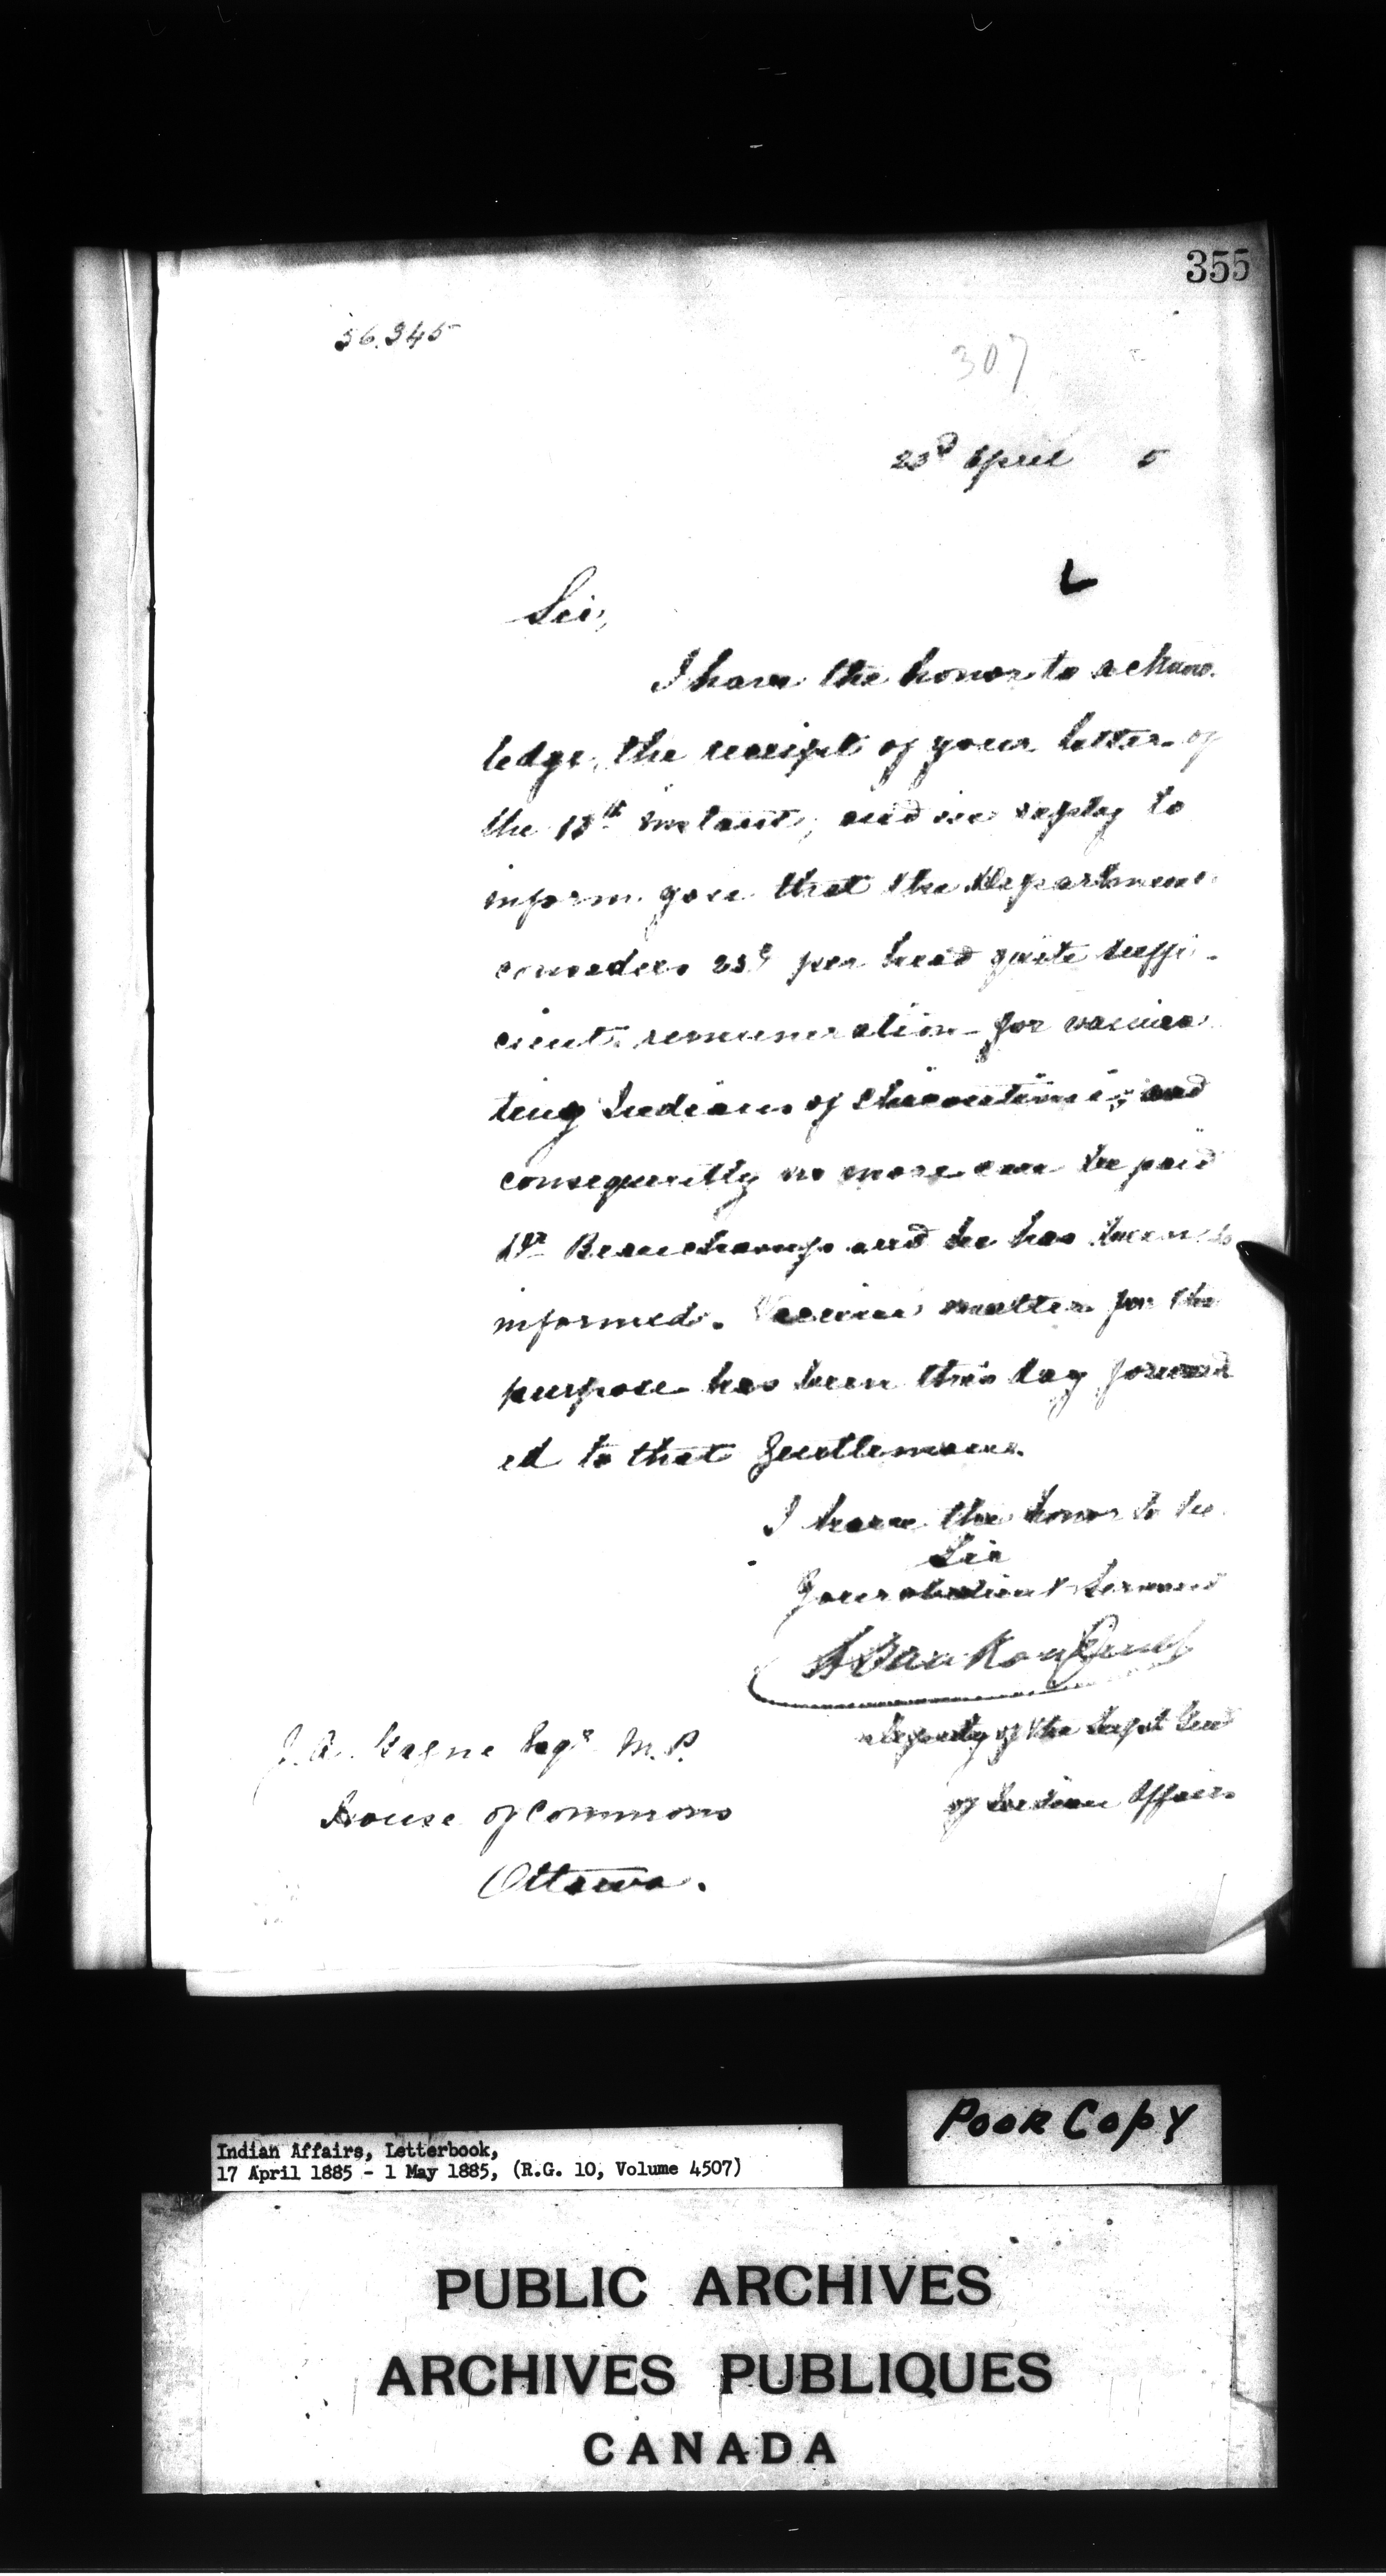 355
56.345
307
23d April 5
Sir,
I have the honor to acknow-
ledge the receipt of your letter of
the 18th instant, and in reply to
inform you that the Department
considers 25c per head quite suffi-
cient remuneration for vaccina
ting Indians of Chicoutimi; and
consequently no more can be paid
Dr Beauchamp and he has been so
informed. Vaccine matter for the
purpose has been this day forward
ed to that Gentleman.
I have the honor to be
Sir
Your obedient Servant
L VanKoughnet
Deputy of the Supt Gen
of Indian Affairs
J. A. Gagne Esqr M.P.
House of Commons
Ottawa.
Poor Copy
Indian Affairs, Letterbook,
17 April 1885 - 1 May 1885, (R.G. 10, Volume 4507)
PUBLIC ARCHIVES
ARCHIVES PUBLIQUES
CANADA